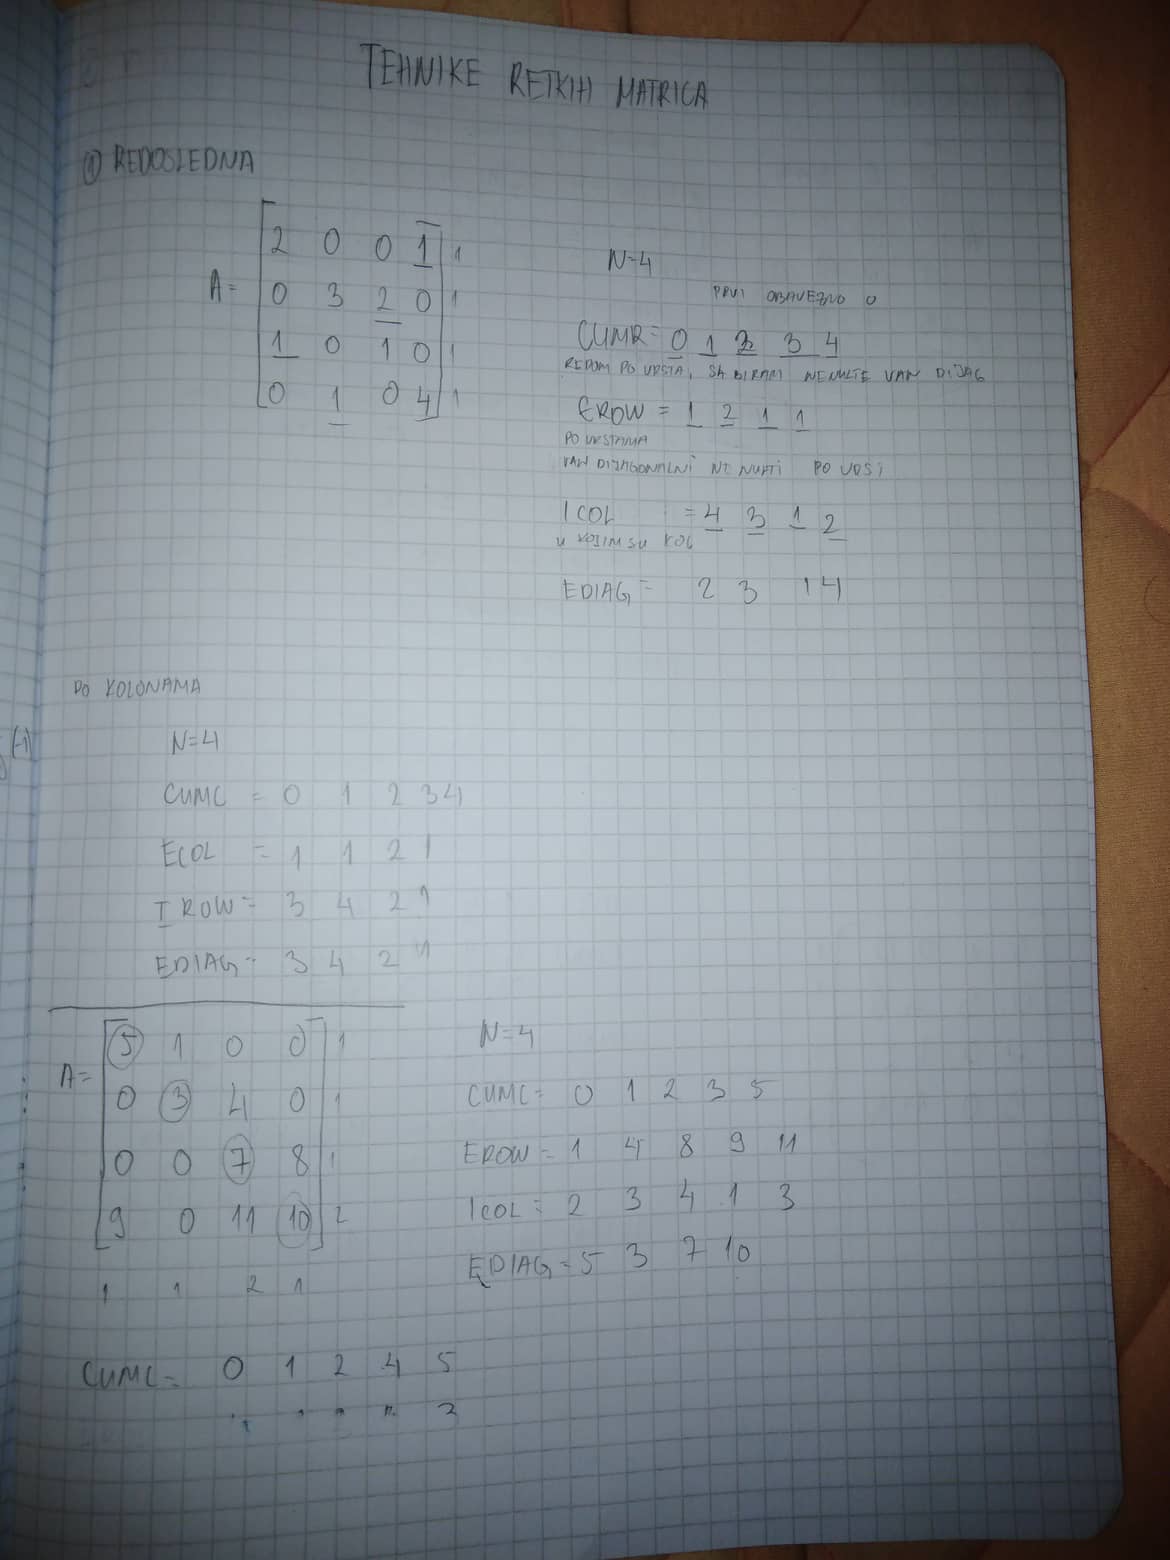 TEHNIKE RETKIH MATRICA
① REDOSLEDNA
A=
2 0 0 1 1
0 3 2 0 1
1 0 1 0 1
0 1 0 4 1
N=4
PRVI OBAVEZNO 0
CUMR= 0 1 2 3 4
REDOM PO VRSTA, SABIRAM NENULTE VAN DIJAG
EROW = 1 2 1 1
PO VRSTAMA
VAN DIJAGONALNI NE NULTI PO VRSI
ICOL = 4 3 1 2
U KOJIM SU KOL
EDIAG= 2 3 1 4
PO KOLONAMA
(-1)
N=4
CUMC = 0 1 2 3 4
ECOL = 1 1 2 1
IROW= 3 4 2 1
EDIAG= 3 4 2 1
A=
5 1 0 0 1
0 3 4 0 1
0 0 7 8 1
9 0 11 10 2
1 1 2 1
N=4
CUMC= 0 1 2 3 5
EROW= 1 4 8 9 11
ICOL= 2 3 4 1 3
EDIAG= 5 3 7 10
CUMC= 0 1 2 4 5